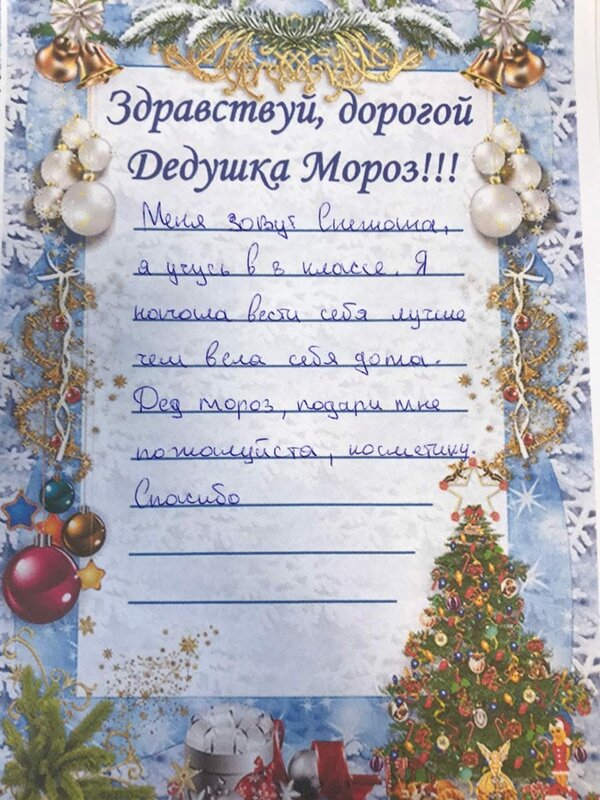 Здравствуй, дорогой
Дедушка Мороз!!!
Меня зовут Снежана,
я учусь в 3 классе. Я
начала вести себя лучше
чем вела себя дома.
Дед мороз, подари мне
пожалуйста, косметику.
Спасибо